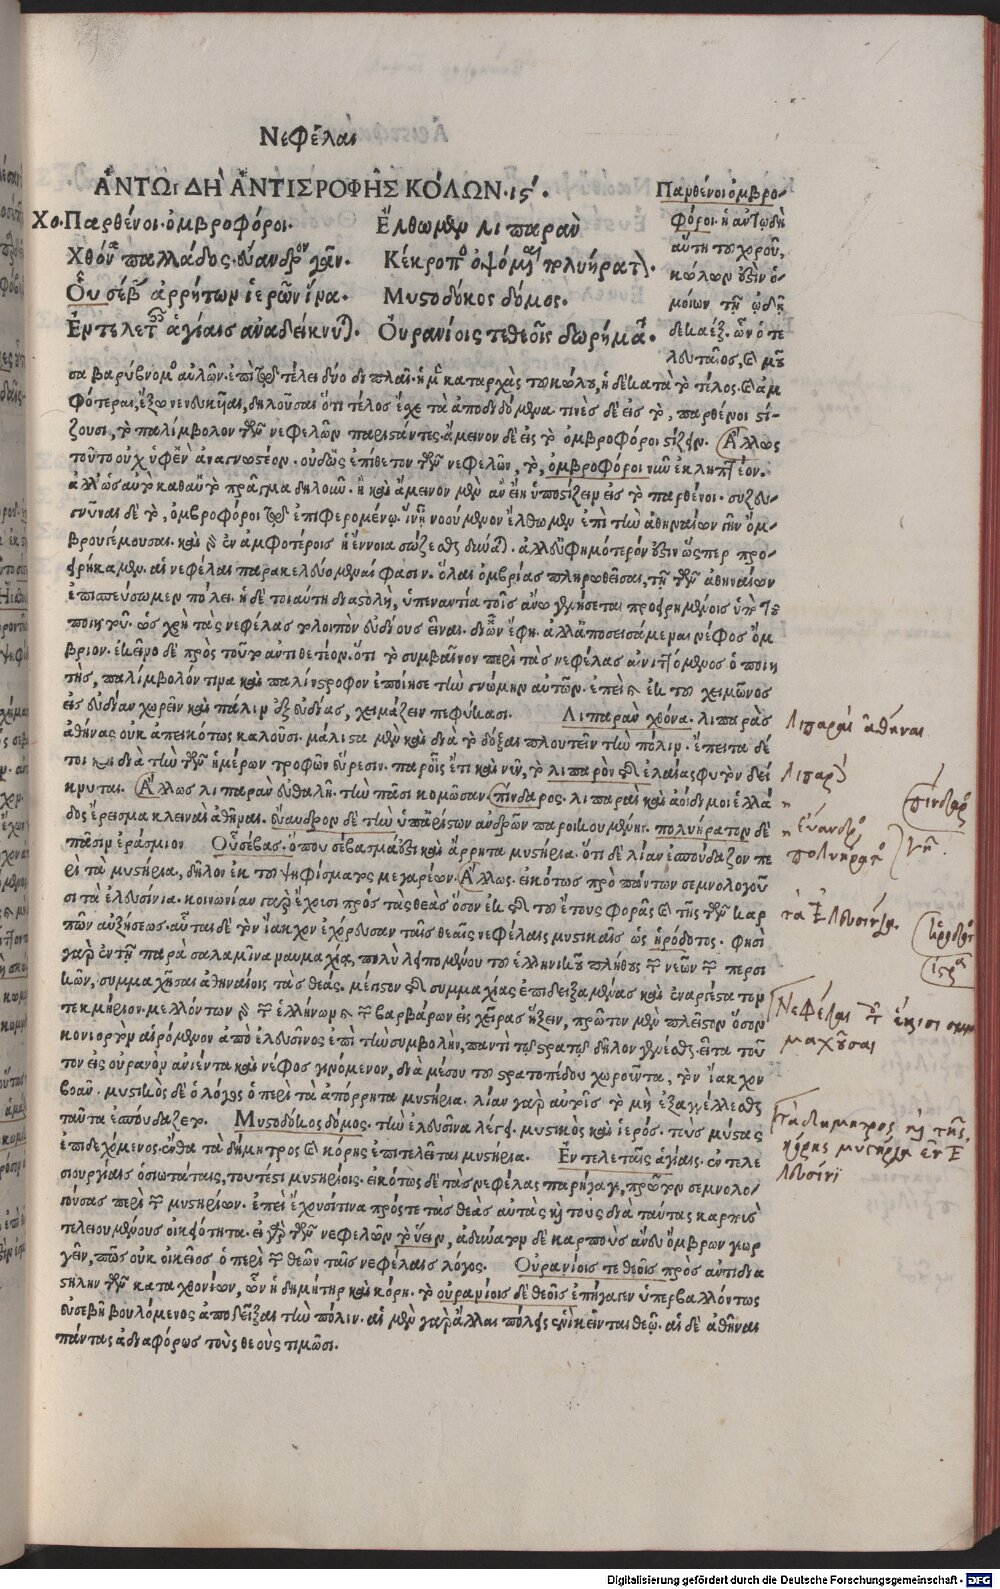 Νεφέλαι
ἈΝΤΩΙΔῊ ἈΝΤΙΣΡΟΦΗ͂Σ ΚΌΛΩΝ·ις΄·
Χο·Παρθένοι·ὀμβροφόροι·
Ἔλθωμεν λιπαρὰν
Χθόνα παλλάδος·εὔανδρον γᾶν·
Κέκροπος ὀψόμεναι πολυήρατον·
Οὗ σέβας ἀρρήτων ἱερῶν ἵνα·
Μυστοδόκος δόμος·
Ἐν τελεταῖς ἁγίαις ἀναδείκνυται·
Οὐρανίοις τε θεοῖς δωρήματα·
Παρθένοι ὀμβρο-
φόροι· ἡ ἀντωδὴ
αὕτη τοῦ χοροῦ,
κώλων ἐστὶν ὁ-
μοίων τῇ ᾠδῇ
δεκαέξ· ὧν ὁ τε
λευταῖος,
φότεραι, ἔξω νενευκυῖαι, δηλοῦσαι ὅτι τέλος ἔχει τὰ ἀποδιδόμενα· τινὲς δὲ εἰς τὸ, παρθένοι στί-
ζουσι, τὸ παλίμβολον τῶν νεφελῶν παριστάντες· ἄμεινον δὲ εἰς τὸ ὀμβροφόροι στίζειν· Ἄλλως
τοῦτο οὐχ ὑφὲν ἀναγνωστέον· οὐδ' ὡς ἐπίθετον τῶν νεφελῶν, τὸ, ὀμβροφόροι νῦν ἐκληπτέον·
ἀλλ' ὡς αὐτὸ καθ' αὑτὸ πρᾶγμα δηλοῦν· ἢ καὶ ἄμεινον μὲν ἂν εἴη ὑποστίζειν εἰς τὸ παρθένοι· συζευ-
γνῦναι δὲ τὸ, ὀμβροφόροι τῷ ἐπιφερομένῳ· ἵν' ᾖ νοούμενον ἔλθωμεν ἐπὶ τὴν ἀθηναίων γῆν ὄμ-
βρους ἔμουσαι· καὶ γὰρ ἐν ἀμφοτέροις ἡ ἔννοια σώζεσθαι δύναται· ἀλλ' εὐφημότερόν ἐστιν ὥσπερ προ-
ειρήκαμεν· αἱ νεφέλαι παρακελευόμεναί φασιν· ὅλαι ὀμβρίας πληρωθεῖσαι, τῇ τῶν ἀθηναίων
ἐπισπεύσωμεν πόλει· ἡ δὲ τοιαύτη διαστολὴ, ὑπεναντία τοῖς ἄνω γενήσεται προειρημένοις ὑπὸ τοῦ
ποιητοῦ· ὡς χρὴ τὰς νεφέλας τολοιπὸν εὐδίους εἶναι· δι' ὧν ἔφη· ἀλλ' ἀποσεισάμεναι νέφος ὄμ
βριον· ἐκεῖνο δὲ πρὸς τοῦτο ἀντιθετέον· ὅτι τὸ συμβαῖνον περὶ τὰς νεφέλας αἰνιττόμενος ὁ ποιη
τὴς, παλίμβολόν τινα καὶ παλίνστροφον ἐποίησε τὴν γνώμην αὐτῶν· ἐπεὶ καὶ ἐκ τοῦ χειμῶνος
εἰς εὐδίαν χωρεῖν καὶ πάλιν ἐξ εὐδίας, χειμάζειν πεφύκασι· Λιπαρὰν χθόνα· λιπαρὰς
ἀθήνας οὐκ ἀπεικότως καλοῦσι· μάλιστα μὲν καὶ διὰ τὸ δόξαι πλουτεῖν τὴν πόλιν· ἔπειτα δέ
τοι καὶ διὰ τὴν τῶν ἡμέρων τροφῶν εὕρεσιν· παρ' οἷς ἔτι καὶ νῦν, τὸ λιπαρὸν τῆς ἐλαίας φυτὸν δεί
κνυται· Ἄλλως λιπαρὰν εὐθαλῆ· τὴν πᾶσι κομῶσαν· πίνδαρος· λιπαραὶ καὶ ἀοίδιμοι ἑλλά
δος ἔρεισμα κλειναὶ ἀθῆναι· εὔανδρον δὲ τὴν ὑπ' ἀρίστων ἀνδρῶν παροικουμένην· πολυήρατον δὲ
πᾶσιν ἐράσμιον Οὗ σέβας· ὅπου σέβασμά ἐστι καὶ ἄρρητα μυστήρια· ὅτι δὲ λίαν ἐσπούδαζον πε
ρὶ τὰ μυστήρια, δῆλον ἐκ τοῦ ψηφίσματος μεγαρέων· Ἄλλως· εἰκότως πρὸ πάντων σεμνολογοῦ
σι τὰ ἐλευσίνια· κοινωνίαν γὰρ ἔχουσι πρὸς τὰς θεὰς ὅσον ἐκ τῆς τοῦ ἔτους φορᾶς καὶ τῆς τῶν καρ
πῶν αὐξήσεως· αὗται δὲ τὸν ἴακχον ἐχόρευσαν ταῖς θεαῖς νεφέλαις μυστικαῖς ὡς ἡρόδοτος· φησὶ
γὰρ ἐν τῇ παρὰ σαλαμῖνα ναυμαχίᾳ, πολὺ λειπομένου τοῦ ἑλληνικοῦ πλήθους τῶν νεῶν τῶν περσι
κῶν, συμμαχῆσαι ἀθηναίοις τὰς θεάς· μέγιστον τῆς συμμαχίας ἐπιδειξαμένας καὶ ἐναργέστατον
τεκμήριον· μελλόντων γὰρ τῶν ἑλλήνων καὶ τῶν βαρβάρων εἰς χεῖρας ἥξειν, πρῶτον μὲν πλεῖστον ὅσον
κονιορτὸν αἰρόμενον ἀπὸ ἐλευσῖνος ἐπὶ τὴν συμβολὴν, παντὶ τῷ στρατῷ δῆλον γενέσθαι· εἶτα τοῦ
τον εἰς οὐρανὸν ἀνιέντα καὶ νέφος γινόμενον, διὰ μέσου τοῦ στρατοπέδου χωροῦντα, τὸν ἴακχον
βοᾶν· μυστικὸς δὲ ὁ λόγος ὁ περὶ τὰ ἀπόρρητα μυστήρια· λίαν γὰρ αὐτοῖς τὸ μὴ ἐξαγγέλλεσθαι
ταῦτα ἐσπουδάζετο· Μυστοδόκος δόμος· τὴν ἐλευσῖνα λέγει· μυστικὸς καὶ ἱερός· τοὺς μύστας
ἐπιδεχόμενος· ἔνθα τὰ δήμητρος καὶ κόρης ἐπιτελεῖται μυστήρια· Ἐν τελεταῖς ἁγίαις· ἐν τελε
σιουργίαις ὁσιωτάταις, τουτέστι μυστηρίοις· εἰκότως δὲ τὰς νεφέλας παρήγαγε, πρῶτον σεμνολο-
γούσας περὶ τῶν μυστηρίων· ἐπεὶ ἔχουσί τινα πρός τε τὰς θεὰς αὐτὰς καὶ τοὺς διὰ ταύτας καρποὺς
τελειουμένους οἰκειότητα· εἰ γὰρ τῶν νεφελῶν τὸ ὕειν, ἀδύνατον δὲ καρποὺς ἄνευ ὄμβρων γεωρ
γεῖν, πῶς οὐκ οἰκεῖος ὁ περὶ τῶν θεῶν ταῖς νεφέλαις λόγος· Οὐρανίοις τε θεοῖς πρὸς ἀντιδια
στολὴν τῶν καταχθονίων, ὧν ἡ δημήτηρ καὶ κόρη· τὸ οὐρανίοις δὲ θεοῖς ἐπήγαγεν ὑπερβαλλόντως
εὐσεβῆ βουλόμενος ἀποδεῖξαι τὴν πόλιν· αἱ μὲν γὰρ ἄλλαι πόλεις ἑνὶ κεῖνται θεῷ· αἱ δὲ ἀθῆναι
πάντας ἀδιαφόρως τοὺς θεοὺς τιμῶσι·
Λιπαραὶ ἀθῆναι
Λιπαρὸν
πίνδαρος
Εὔανδρος
πολυήρατος
γῆ·
τὰ Ἐλευσίνια·
Ἡρόδοτος
Νεφέλαι
μαχοῦσαι
τὰ δήμητρος καὶ τῆς
κόρης μυστήρια ἐν Ἐ
λευσίνι
Digitalisierung gefördert durch die Deutsche Forschungsgemeinschaft - DFG